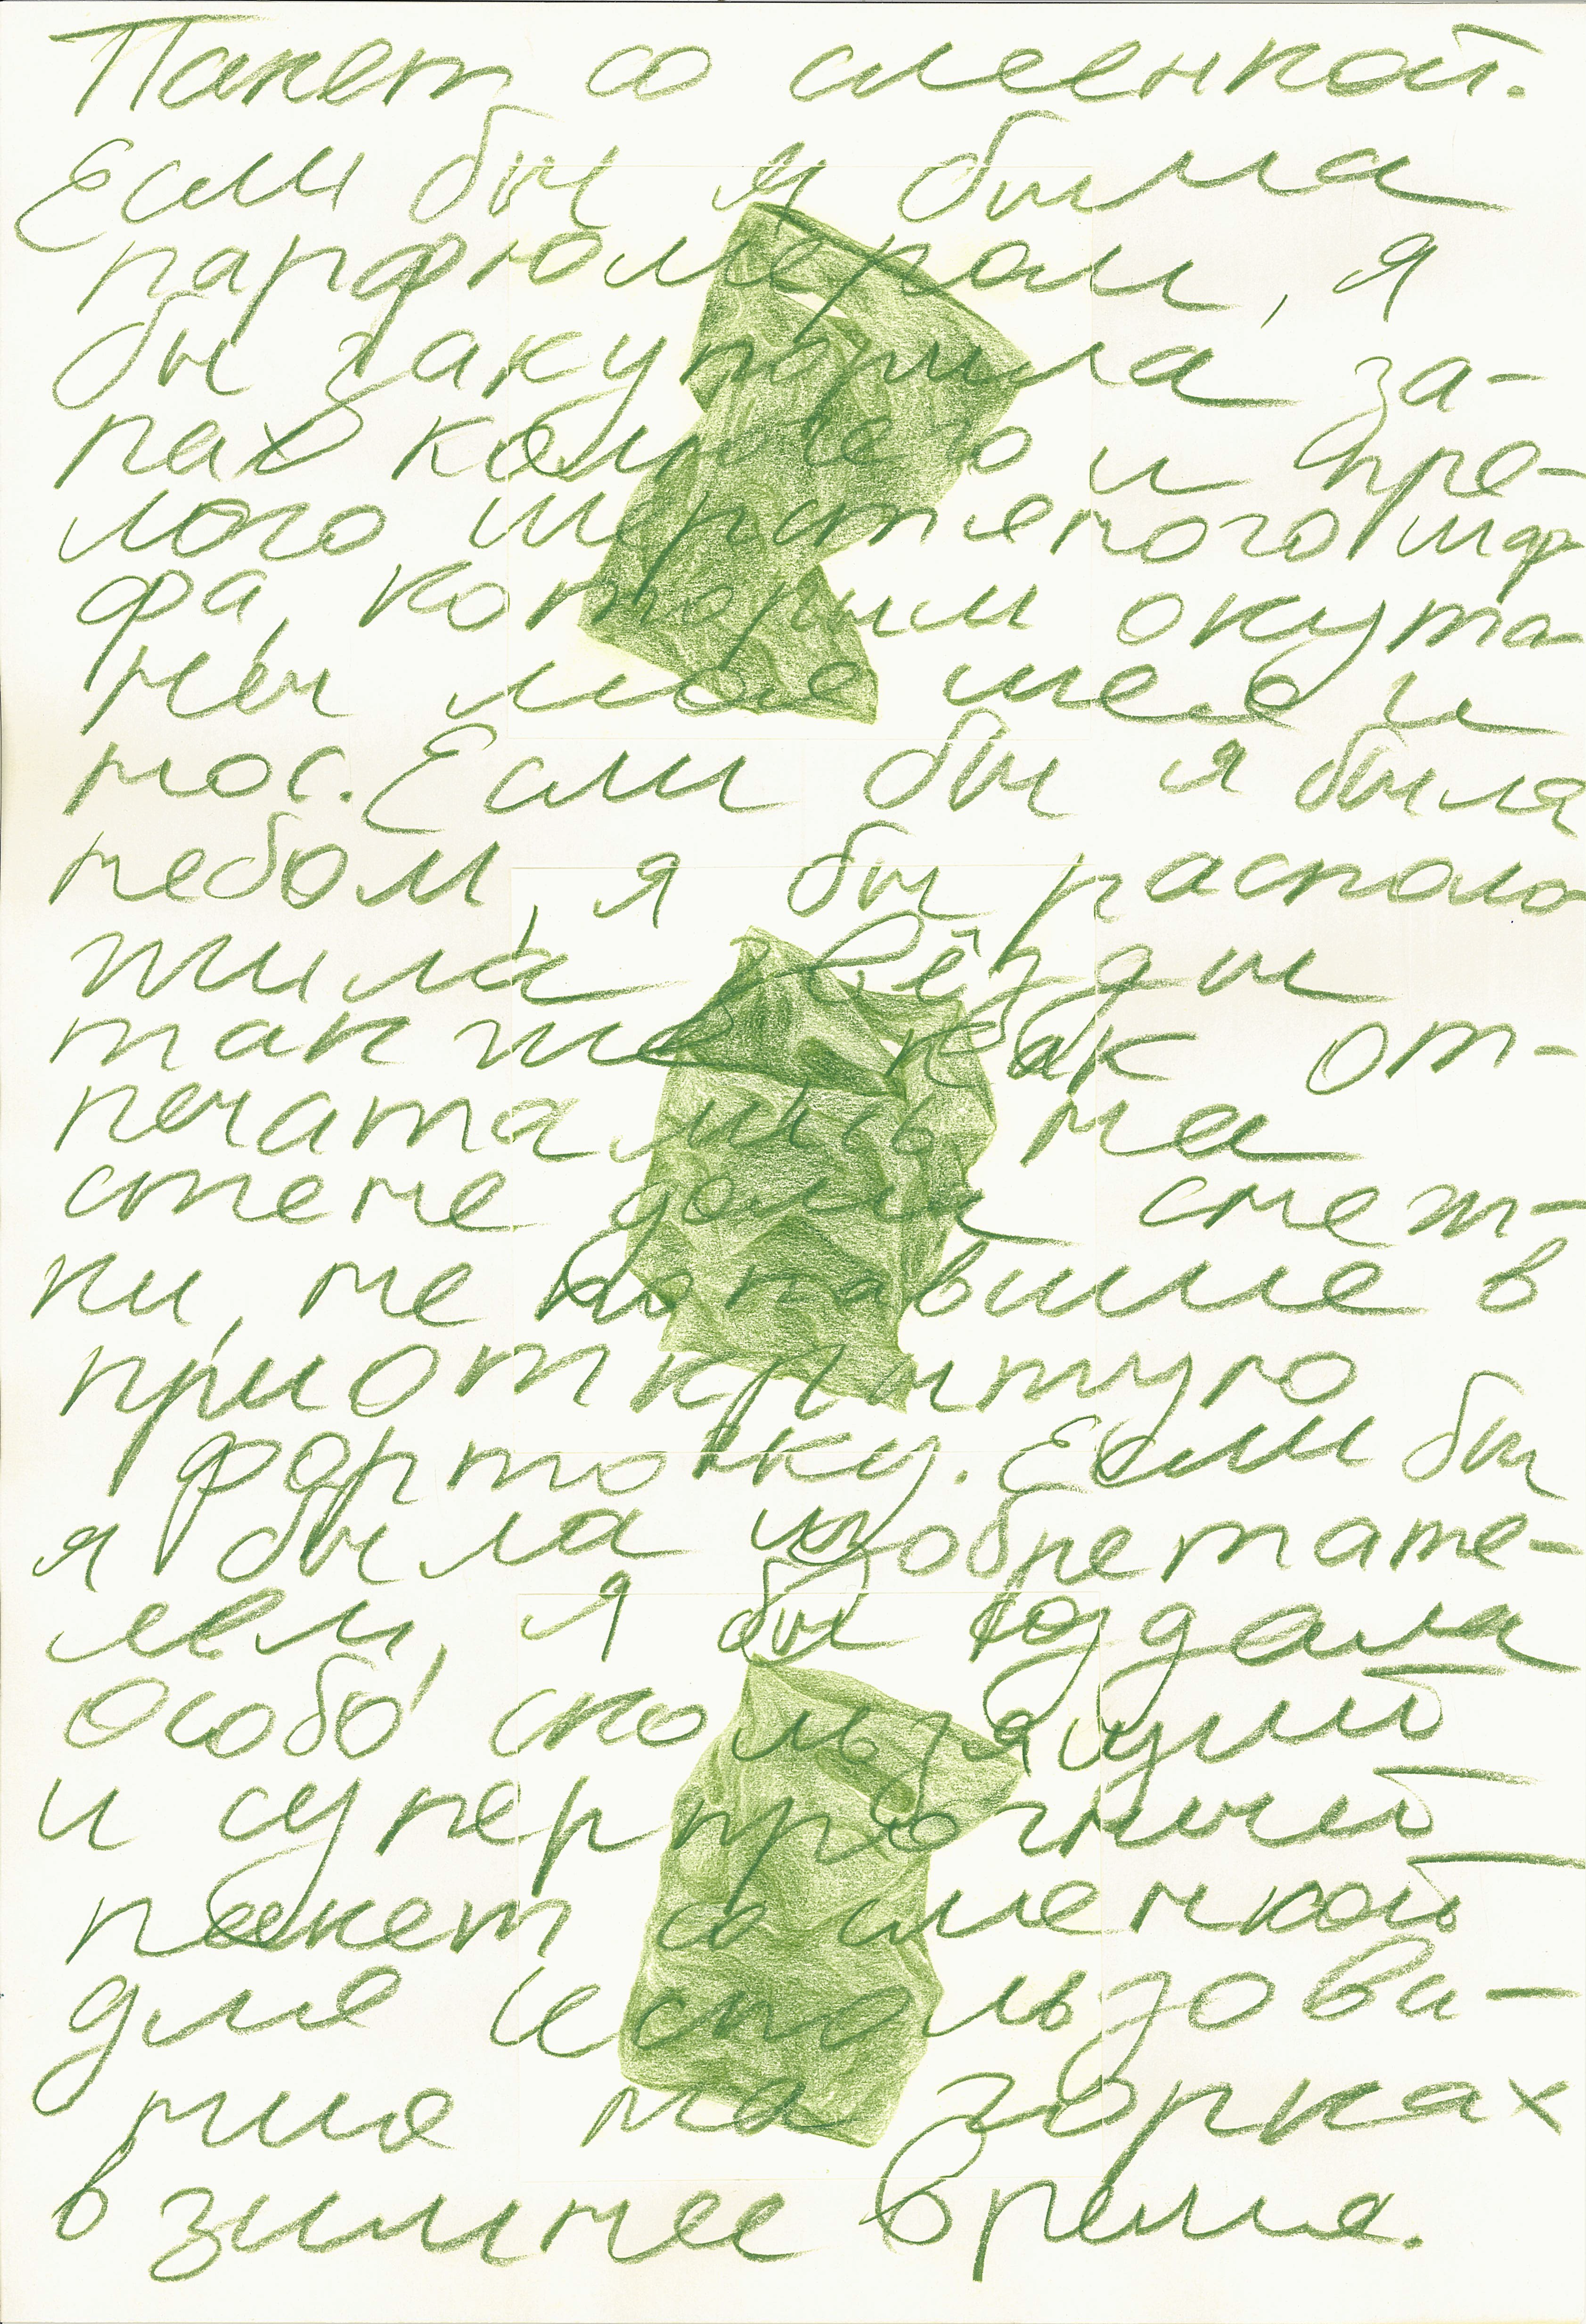 Пакет со сменкой.
Если бы я была
парфюмером, я
бы закупорила за-
пах колючего и пре-
лого шерстяного шар-
фа, которым окута-
ны моя шея и
нос. Если бы я была
небом, я бы располо-
жила звёзды
так же как от-
печатались на
стене дома снеж-
ки, не попавшие в
приоткрытую
форточку. Если бы
я была изобретате-
лем, я бы создала
особо скользящий
и суперпрочный
пакет со сменкой
для использова-
ния на горках
в зимнее время.